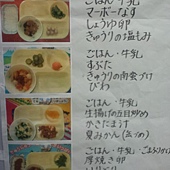 ごはん・牛乳
マーボーなす
しょうゆ卵
きゅうりの塩もみ
ごはん・牛乳
すぶた
きゅうりの南蛮づけ
びわ
ごはん・牛乳
生揚げの五目炒め
かきたま汁
夏みかん(缶づめ)
ごはん・牛乳・
厚焼き卵